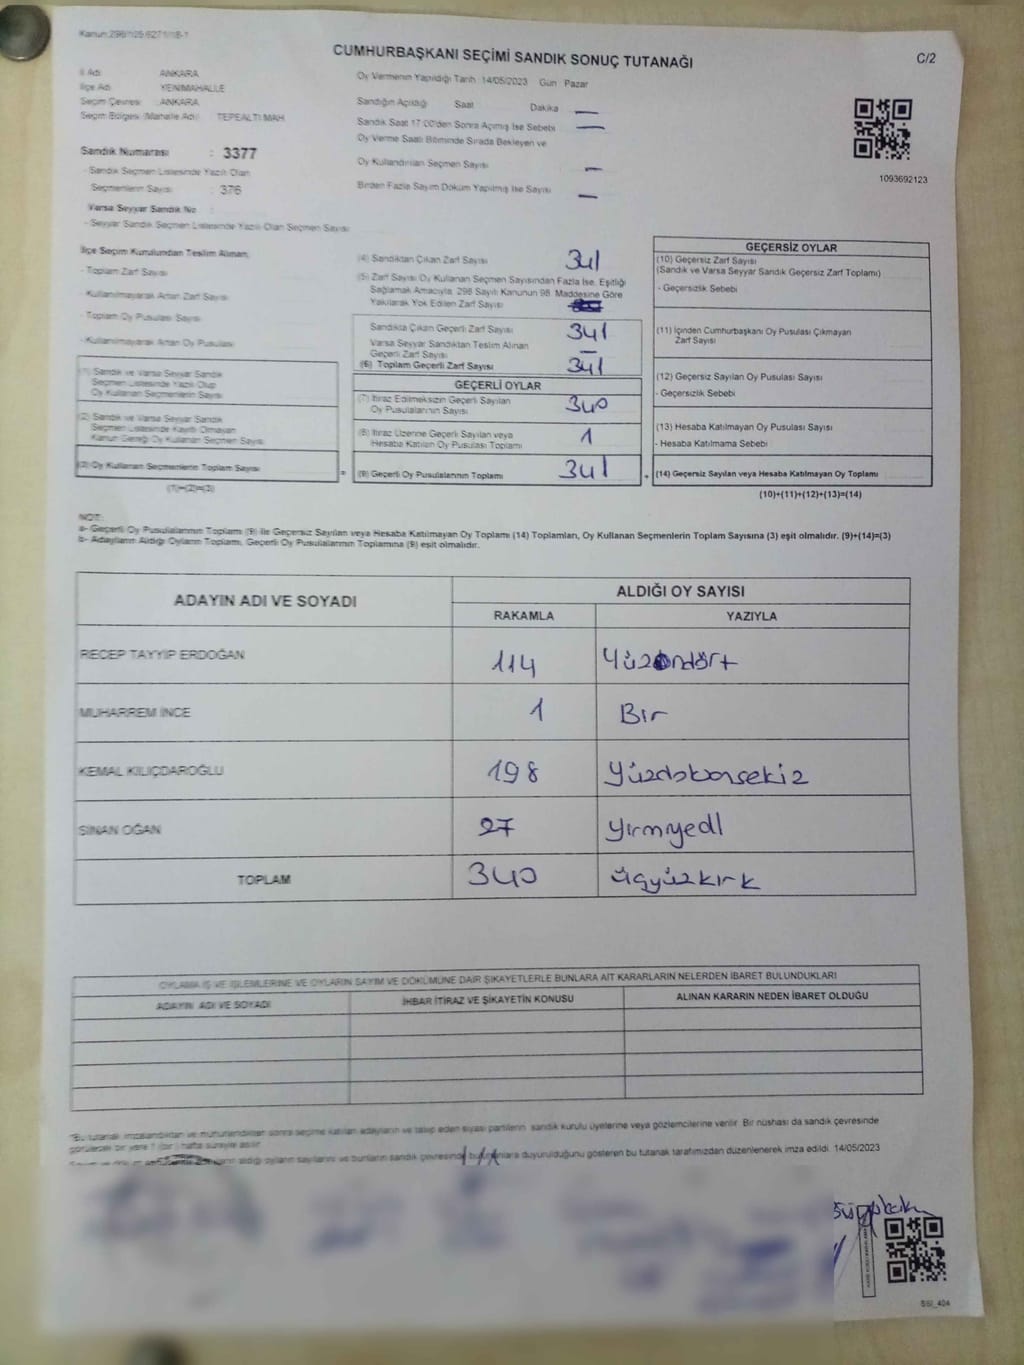 Kanun:298/105,6271/18-1
CUMHURBAŞKANI SEÇİMİ SANDIK SONUÇ TUTANAĞI
C/2
İl Adı ANKARA
İlçe Adı YENİMAHALLE
Seçim Çevresi : ANKARA
Seçim Bölgesi (Mahalle Adı) TEPEALTI MAH.
Sandık Numarası : 3377
- Sandık Seçmen Listesinde Yazılı Olan
Seçmenlerin Sayısı : 376
Varsa Seyyar Sandık No :
- Seyyar Sandık Seçmen Listesinde Yazılı Olan Seçmen Sayısı
Oy Vermenin Yapıldığı Tarih 14/05/2023 Gün Pazar
Sandığın Açıldığı Saat Dakika —
Sandık Saat 17:00'den Sonra Açılmış İse Sebebi —
Oy Verme Saati Bitiminde Sırada Bekleyen ve
Oy Kullandırılan Seçmen Sayısı —
Birden Fazla Sayım Döküm Yapılmış İse Sayısı —
1093692123
İlçe Seçim Kurulundan Teslim Alınan;
- Toplam Zarf Sayısı
- Kullanılmayarak Artan Zarf Sayısı
- Toplam Oy Pusulası Sayısı
- Kullanılmayarak Artan Oy Pusulası
(1) Sandık ve Varsa Seyyar Sandık
Seçmen Listesinde Yazılı Olup
Oy Kullanan Seçmenlerin Sayısı
(2) Sandık ve Varsa Seyyar Sandık
Seçmen Listesinde Kayıtlı Olmayan
Kanun Gereği Oy Kullanan Seçmen Sayısı
(3) Oy Kullanan Seçmenlerin Toplam Sayısı
(1)+(2)=(3)
(4) Sandıktan Çıkan Zarf Sayısı 341
(5) Zarf Sayısı Oy Kullanan Seçmen Sayısından Fazla İse, Eşitliği
Sağlamak Amacıyla, 298 Sayılı Kanunun 98. Maddesine Göre
Yakılarak Yok Edilen Zarf Sayısı
Sandıkta Çıkan Geçerli Zarf Sayısı 341
Varsa Seyyar Sandıktan Teslim Alınan
Geçerli Zarf Sayısı —
(6) Toplam Geçerli Zarf Sayısı 341
GEÇERLİ OYLAR
(7) İtiraz Edilmeksizin Geçerli Sayılan
Oy Pusulalarının Sayısı 340
(8) İtiraz Üzerine Geçerli Sayılan veya
Hesaba Katılan Oy Pusulası Toplamı 1
= (9) Geçerli Oy Pusulalarının Toplamı 341 +
GEÇERSİZ OYLAR
(10) Geçersiz Zarf Sayısı
(Sandık ve Varsa Seyyar Sandık Geçersiz Zarf Toplamı)
- Geçersizlik Sebebi
(11) İçinden Cumhurbaşkanı Oy Pusulası Çıkmayan
Zarf Sayısı
(12) Geçersiz Sayılan Oy Pusulası Sayısı
- Geçersizlik Sebebi
(13) Hesaba Katılmayan Oy Pusulası Sayısı
- Hesaba Katılmama Sebebi
(14) Geçersiz Sayılan veya Hesaba Katılmayan Oy Toplamı
(10)+(11)+(12)+(13)=(14)
NOT:
a- Geçerli Oy Pusulalarının Toplamı (9) ile Geçersiz Sayılan veya Hesaba Katılmayan Oy Toplamı (14) Toplamları, Oy Kullanan Seçmenlerin Toplam Sayısına (3) eşit olmalıdır. (9)+(14)=(3)
b- Adayların Aldığı Oyların Toplamı, Geçerli Oy Pusulalarının Toplamına (9) eşit olmalıdır.
ADAYIN ADI VE SOYADI ALDIĞI OY SAYISI
RAKAMLA YAZIYLA
RECEP TAYYİP ERDOĞAN 114 Yüzondört
MUHARREM İNCE 1 Bir
KEMAL KILIÇDAROĞLU 198 Yüzdoksansekiz
SİNAN OĞAN 27 Yirmiyedi
TOPLAM 340 üçyüzkırk
OYLAMA İŞ VE İŞLEMLERİNE VE OYLARIN SAYIM VE DÖKÜMÜNE DAİR ŞİKAYETLERLE BUNLARA AİT KARARLARIN NELERDEN İBARET BULUNDUKLARI
ADAYIN ADI VE SOYADI İHBAR İTİRAZ VE ŞİKAYETİN KONUSU ALINAN KARARIN NEDEN İBARET OLDUĞU
"Bu tutanak imzalandıktan ve mühürlendikten sonra seçime katılan adayların ve takip eden siyasi partilerin sandık kurulu üyelerine veya gözlemcilerine verilir. Bir nüshası da sandık çevresinde
görülecek bir yere 1 (bir) hafta süreyle asılır.
aldığı oyların sayılarını ve bunların sandık çevresinde duyurulduğunu gösteren bu tutanak tarafımızdan düzenlenerek imza edildi. 14/05/2023
SSİ_404